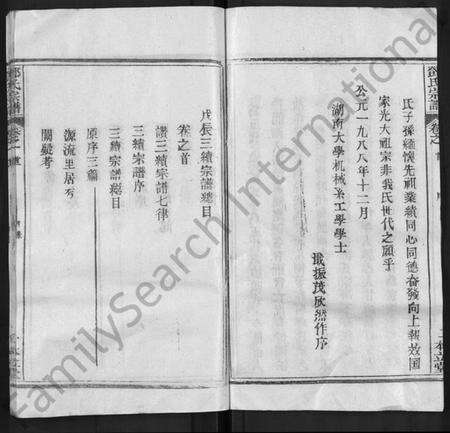 氏子孫緬懷先祖業績同心同德奮發向上報效国
家光大祖宗非我氏世代之願乎
公元一九八八年十二月
湖南大學机械系工學學士
振茂欣然作序
戊辰三續宗譜總目
卷之首
譜三續宗譜七律
三續宗譜序
三續宗譜總目
原序三篇
源流里居考
闕疑考
氏宗譜
卷之首
FamilySearch International